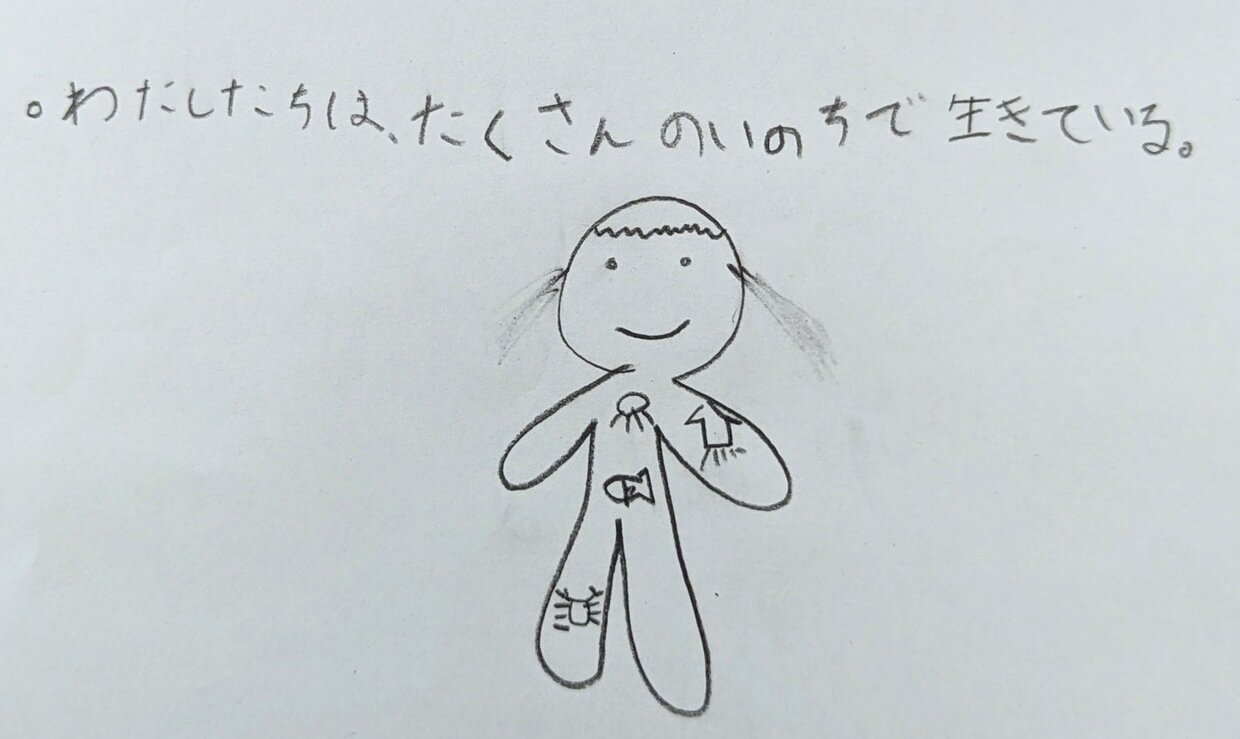 。わたしたちは、たくさんのいのちで生きている。